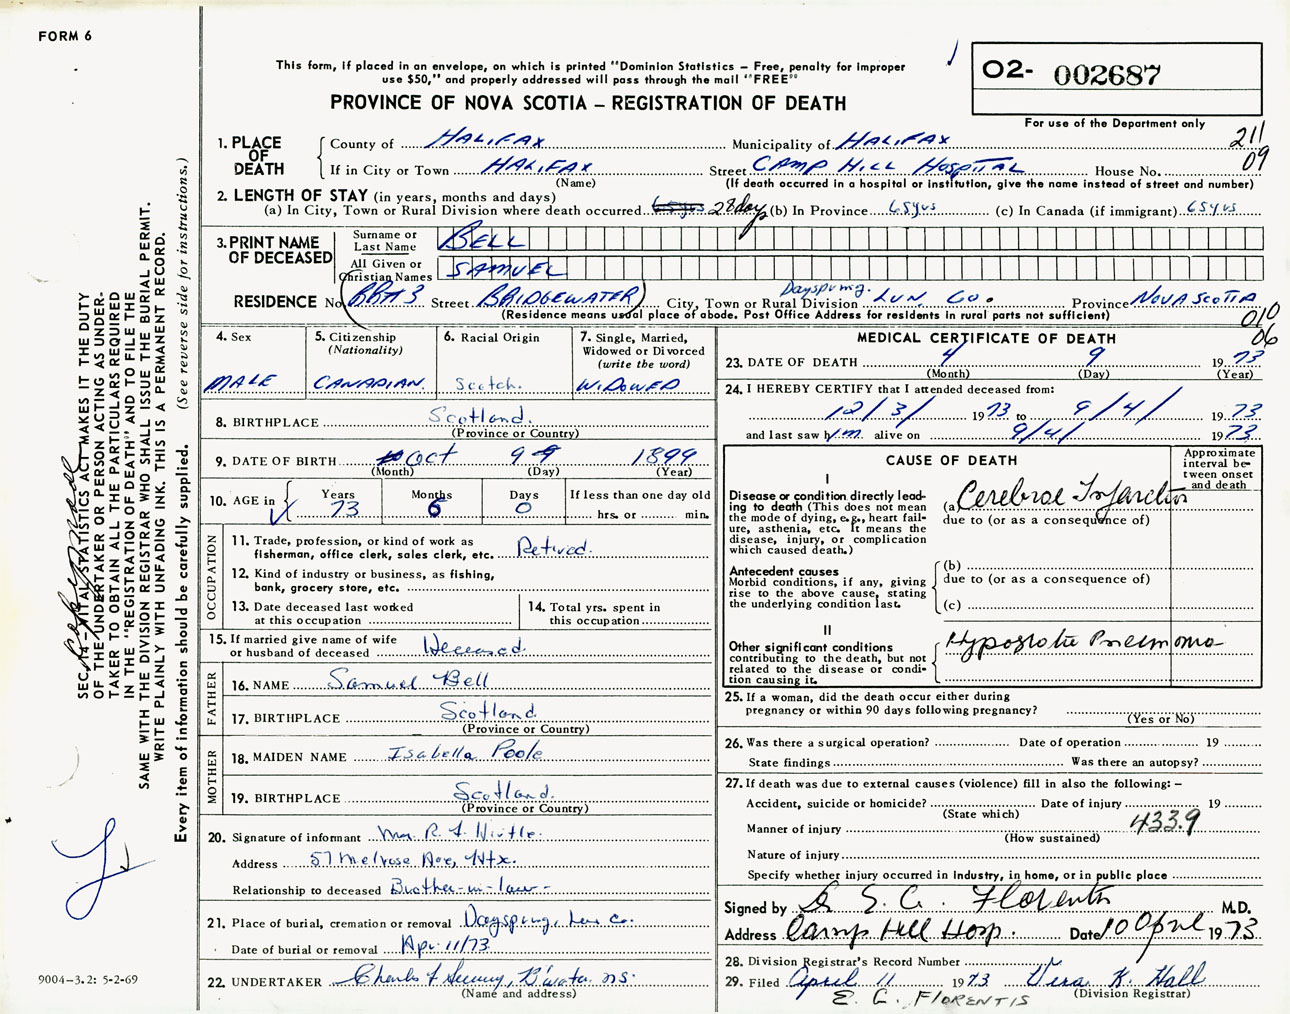 FORM 6
This form, if placed in an envelope, on which is printed "Dominion Statistics – Free, penalty for improper
use $50," and properly addressed will pass through the mail "FREE"
PROVINCE OF NOVA SCOTIA – REGISTRATION OF DEATH
O2- 002687
For use of the Department only
211
09
1. PLACE OF DEATH
County of HALIFAX Municipality of HALIFAX
If in City or Town HALIFAX Street CAMP HILL HOSPITAL House No.
(Name) (If death occurred in a hospital or institution, give the name instead of street and number)
2. LENGTH OF STAY (in years, months and days)
(a) In City, Town or Rural Division where death occurred 65yrs 28day (b) In Province 65yrs (c) In Canada (if immigrant) 65yrs
3. PRINT NAME OF DECEASED
Surname or Last Name BELL
All Given or Christian Names SAMUEL
RESIDENCE No. RR#3 Street BRIDGEWATER City, Town or Rural Division Dayspring. LUN. CO. Province NOVA SCOTIA
(Residence means usual place of abode. Post Office Address for residents in rural parts not sufficient)
010
06
4. Sex
MALE
5. Citizenship
(Nationality)
CANADIAN.
6. Racial Origin
Scotch.
7. Single, Married,
Widowed or Divorced
(write the word)
WIDOWED
8. BIRTHPLACE Scotland.
(Province or Country)
9. DATE OF BIRTH Oct 9 1899
(Month) (Day) (Year)
10. AGE in Years 73 Months 6 Days 0 If less than one day old
hrs. or min.
OCCUPATION
11. Trade, profession, or kind of work as
fisherman, office clerk, sales clerk, etc. Retired.
12. Kind of industry or business, as fishing,
bank, grocery store, etc.
13. Date deceased last worked
at this occupation
14. Total yrs. spent in
this occupation
15. If married give name of wife
or husband of deceased Deceased.
FATHER
16. NAME Samuel Bell
17. BIRTHPLACE Scotland.
(Province or Country)
MOTHER
18. MAIDEN NAME Isabella Poole
19. BIRTHPLACE Scotland.
(Province or Country)
20. Signature of informant Mr. R. Hirtle.
Address 57 Melrose Ave, Hfx.
Relationship to deceased Brother-in-law-
21. Place of burial, cremation or removal Dayspring, Lun Co.
Date of burial or removal Apr. 11/73
22. UNDERTAKER Charles B'water NS.
(Name and address)
MEDICAL CERTIFICATE OF DEATH
23. DATE OF DEATH 4 9 1973
(Month) (Day) (Year)
24. I HEREBY CERTIFY that I attended deceased from:
12/3/ 1973 to 9/4/ 1973
and last saw him alive on 9/4/ 1973
CAUSE OF DEATH
Approximate
interval be-
tween onset
and death
I
Disease or condition directly lead-
ing to death (This does not mean
the mode of dying, e.g., heart fail-
ure, asthenia, etc. It means the
disease, injury, or complication
which caused death.)
(a) Cerebral Infarction
due to (or as a consequence of)
Antecedent causes
Morbid conditions, if any, giving
rise to the above cause, stating
the underlying condition last.
(b)
due to (or as a consequence of)
(c)
II
Other significant conditions
contributing to the death, but not
related to the disease or condi-
tion causing it.
Hypostatic Pneumonia
25. If a woman, did the death occur either during
pregnancy or within 90 days following pregnancy?
(Yes or No)
26. Was there a surgical operation? Date of operation 19
State findings Was there an autopsy?
27. If death was due to external causes (violence) fill in also the following: –
Accident, suicide or homicide? Date of injury 19
(State which)
433.9
Manner of injury
(How sustained)
Nature of injury
Specify whether injury occurred in industry, in home, or in public place
Signed by E. G. Florentis M.D.
Address Camp Hill Hosp. Date 10 April 1973
28. Division Registrar's Record Number
29. Filed April 11 1973 Vera K. Hall
(Division Registrar)
E. G. FLORENTIS
SEC. 14 – VITAL STATISTICS ACT MAKES IT THE DUTY
OF THE UNDERTAKER OR PERSON ACTING AS UNDER-
TAKER TO OBTAIN ALL THE PARTICULARS REQUIRED
IN THE "REGISTRATION OF DEATH" AND TO FILE THE
SAME WITH THE DIVISION REGISTRAR WHO SHALL ISSUE THE BURIAL PERMIT.
WRITE PLAINLY WITH UNFADING INK. THIS IS A PERMANENT RECORD.
Every item of information should be carefully supplied. (See reverse side for instructions.)
9004–3.2: 5-2-69